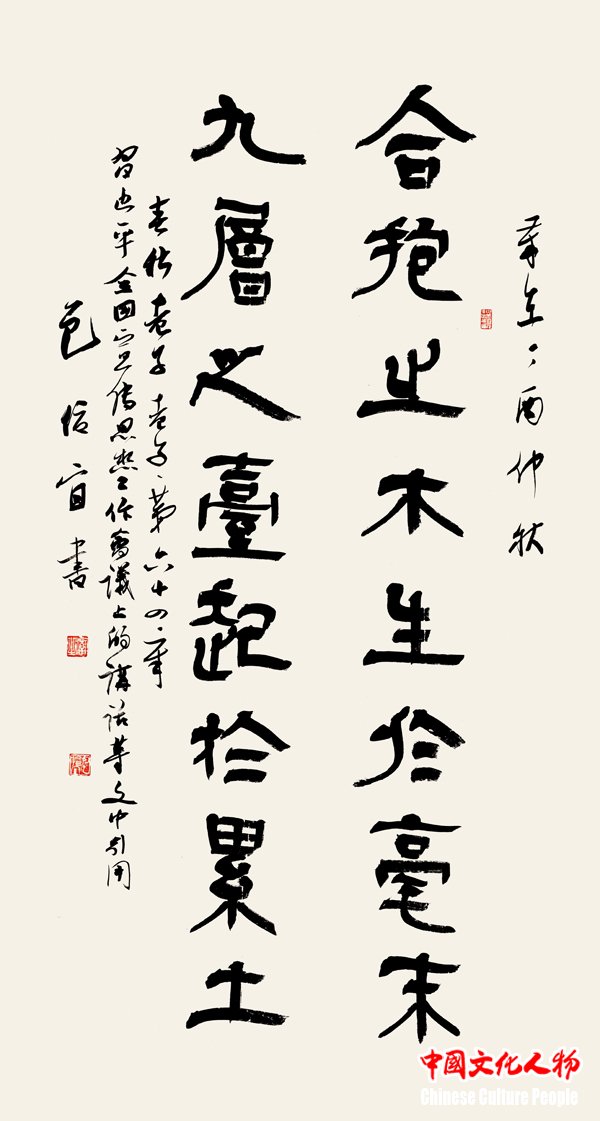 歲在丁酉仲秋
合抱之木生於毫末
九層之臺起於累土
春秋 老子 老子 第六十四章
習近平全国宣传思想工作會議上的講話等文中引用
包俊宜書
中國文化人物
Chinese Culture People